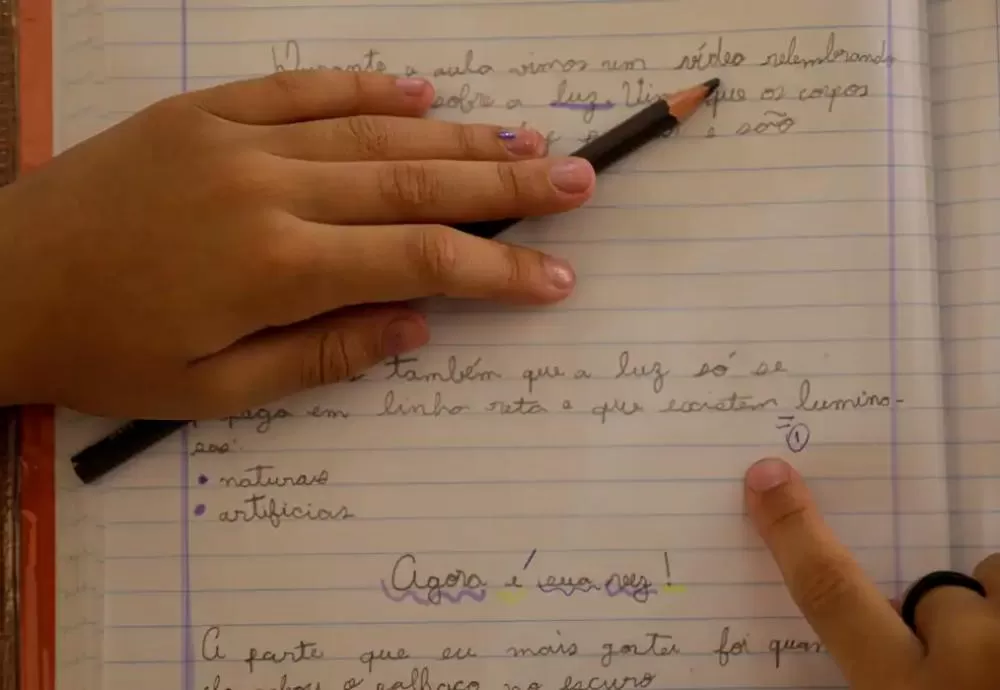 Durante a aula vimos um vídeo relembrando
sobre a luz. que os corpos
e são
também que a luz só se
em linha reta e que existem lumino-
sos:
1
• naturais
• artificiais
Agora é sua vez!
A parte que eu mais gostei foi
o palhaço no escuro